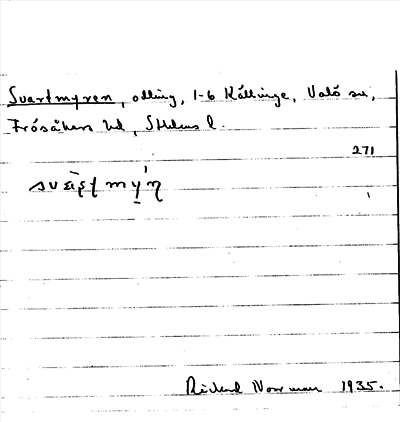 Svartmyren, odling, 1-6 Källinge, Valö sn,
Frösåkers hd, Sthlms l.
271
Richard Norrman 1935.